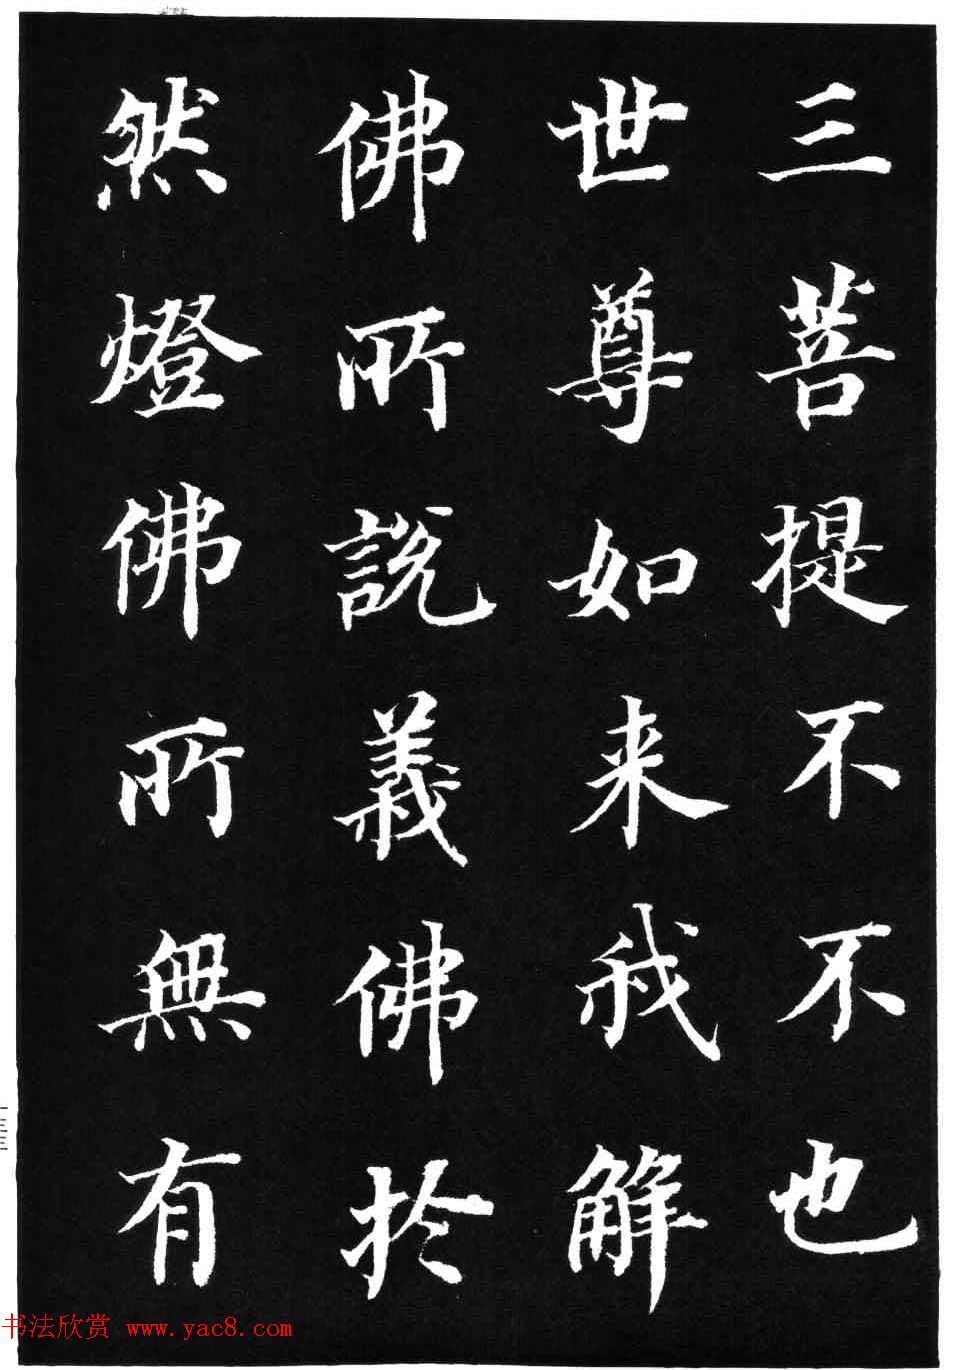 三菩提不不也
世尊如来我解
佛所說義佛於
然燈佛所無有
书法欣赏 www.yac8.com
一三三